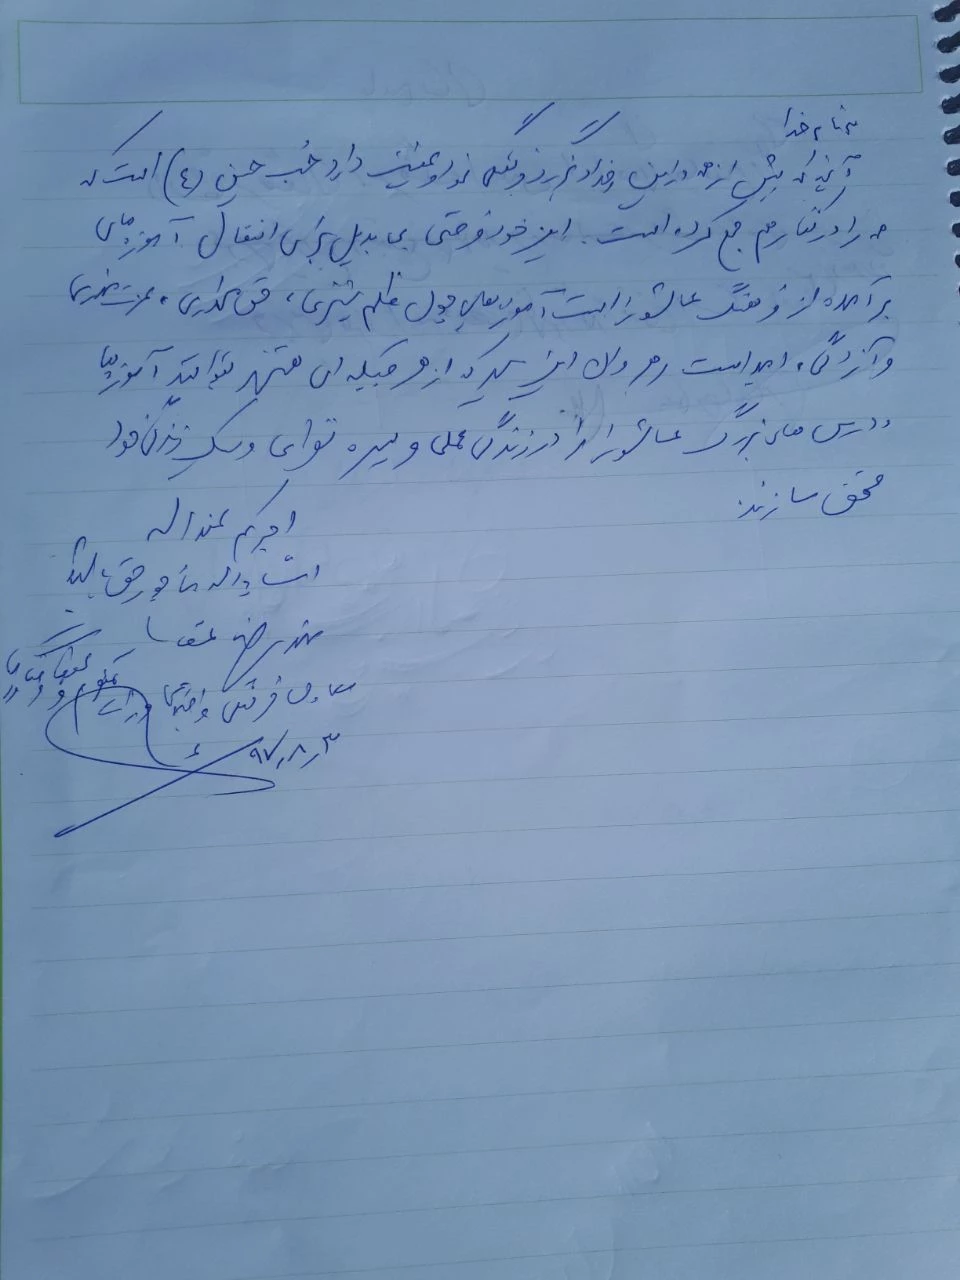 به نام خدا
آنچه که بیش از همه در این رخداد بزرگ فرهنگی نمود عینی دارد حُب حسین (ع) است که
همه را در کنار هم جمع کرده است. این خود فرصتی بی بدیل برای انتقال آموزه های
برآمده از فرهنگ عاشورا است آموزه هایی چون ظلم ستیزی، حق مداری، عزت مندی
و آزادگی، امید است رهروان این مسیر که از هر قبیله ای هستند بتوانند آموزه ها
و درس های بزرگ عاشورا را در زندگی عملی و سبک زندگی خود
محقق سازند.
اجرکم عندالله
ان شاءالله
معاون فرهنگی و اجتماعی وزارت علوم
۹۷/۸/۳